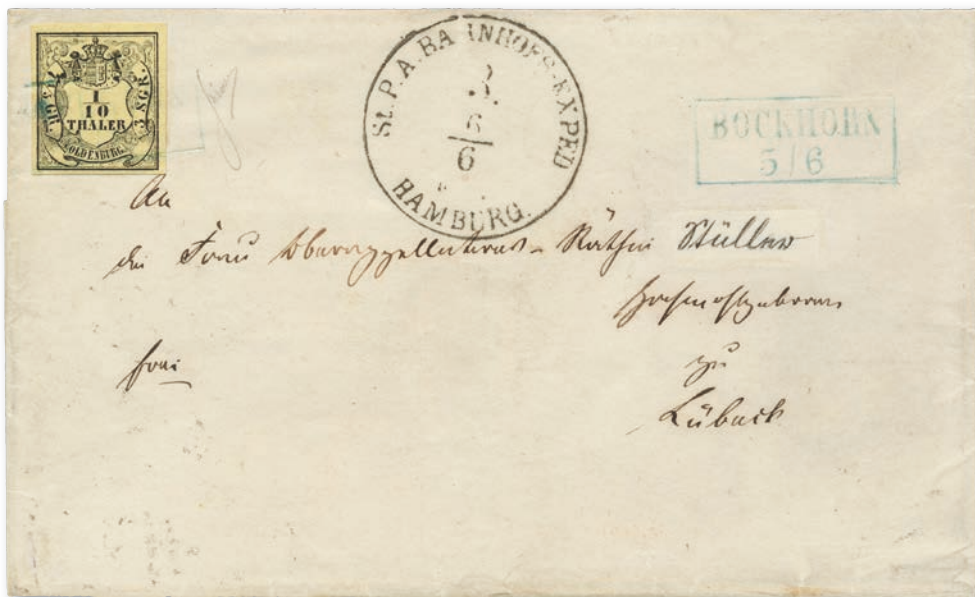 1
10
THALER
3 SGR.
OLDENBURG.
St. P. A. BAHNHOFS-EXPED
3.
6
6
HAMBURG.
BOCKHORN
5/6
An
die Frau Oberappellations-Räthin Stüllen
Hochwohlgeboren
frei
zu
Lübeck